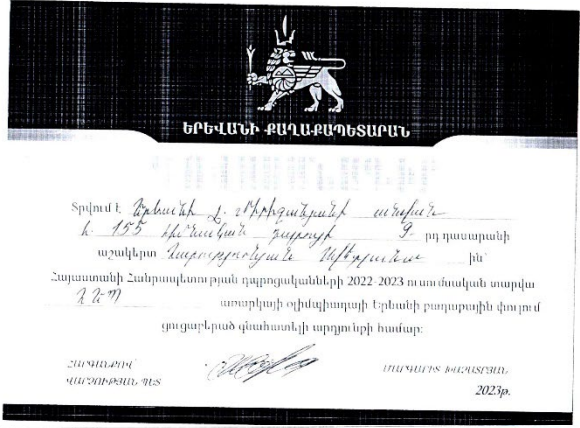 ԵՐԵՎԱՆԻ ՔԱՂԱՔԱՊԵՏԱՐԱՆ
Տրվում է Երևանի Հ. Միրիջանյանի անվան
հ. 155 հիմնական դպրոցի 9- րդ դասարանի
աշակերտ Հարությունյան ին՝
Հայաստանի Հանրապետության դպրոցականների 2022-2023 ուսումնական տարվա
առարկայի օլիմպիադայի Երևանի քաղաքային փուլում
ցուցաբերած գնահատելի արդյունքի համար:
ՀԱՐԳԱՆՔՈՎ՝
ՎԱՐՉՈՒԹՅԱՆ ՊԵՏ
ՄԱՐԳԱՐԻՏ ԽԱՉԱՏՐՅԱՆ
2023թ.